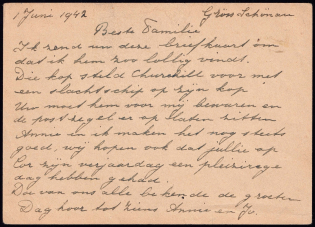 1 Juni 1942 Gross-Schönau
Beste Familie
Ik zend uw deze briefkaart om
dat ik hem zoo lollig vindt.
Die kop steld Churchill voor met
een slachtschip op zijn kop
Uw moet hem voor mij bewaren en
de postzegel er op laten zitten
Annie en ik maken het nog steeds
goed, wij hopen ook dat jullie op
Cor zijn verjaardag een pleizirege
dag hebben gehad.
Doe van ons alle bekende de groeten
Dag hoor tot ziens Annie en Jo.